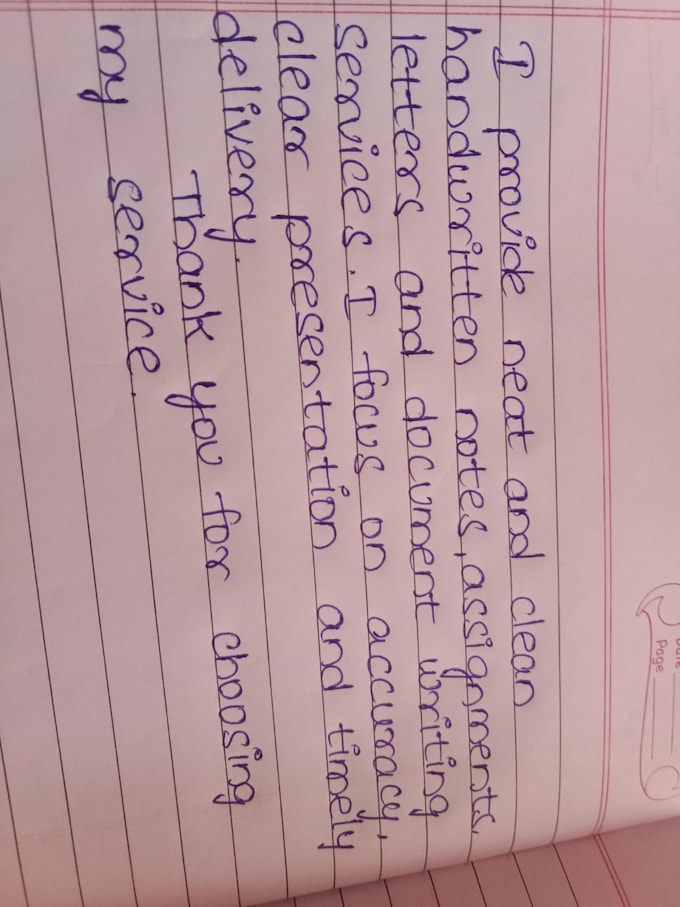 Date
Page
I provide neat and clean
handwritten notes, assignments,
letters and document writing
services. I focus on accuracy,
clear presentation and timely
delivery.
Thank you for choosing
my service.